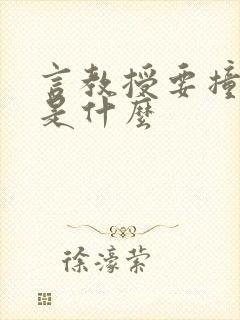 言教授要撞
是什麼
徐濠萦